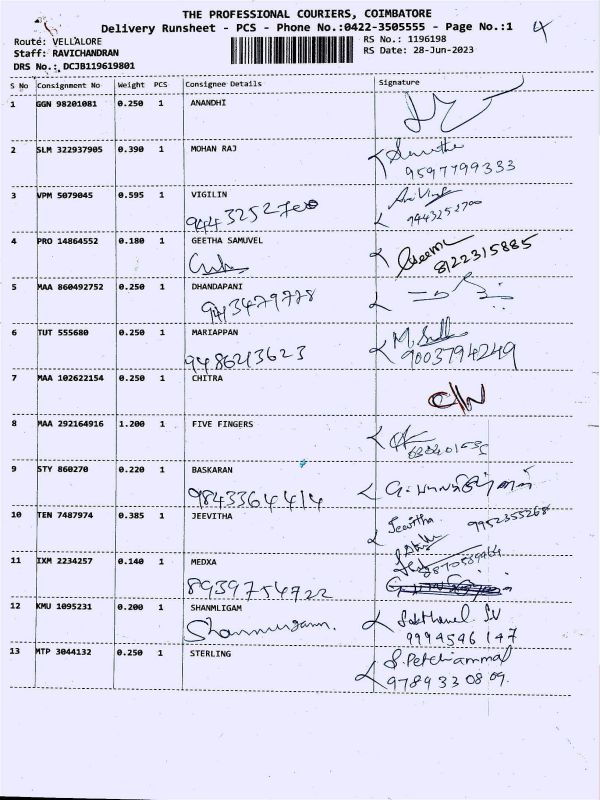 THE PROFESSIONAL COURIERS, COIMBATORE
Delivery Runsheet - PCS - Phone No.:0422-3505555 - Page No.:1
4
Route: VELLALORE
RS No.: 1196198
Staff: RAVICHANDRAN
RS Date: 28-Jun-2023
DRS No.: DCJB119619801
S No Consignment No Weight PCS Consignee Details Signature
1 GGN 98201081 0.250 1 ANANDHI
2 SLM 322937905 0.390 1 MOHAN RAJ
9597799333
3 VPM 5079045 0.595 1 VIGILIN
9443252700
9443252700
4 PRO 14864552 0.180 1 GEETHA SAMUVEL
8122315885
5 MAA 860492752 0.250 1 DHANDAPANI
9413479778
6 TUT 555680 0.250 1 MARIAPPAN
9003794249
9486213623
7 MAA 102622154 0.250 1 CHITRA
C/W
8 MAA 292164916 1.200 1 FIVE FINGERS
9 STY 860270 0.220 1 BASKARAN
9843364414
10 TEN 7487974 0.385 1 JEEVITHA
Jeevitha 9952355268
11 IXM 2234257 0.140 1 MEDXA
8939754722
12 KMU 1095231 0.200 1 SHANMLIGAM
Shanmugam. Sakthivel SV
9994546147
13 MTP 3044132 0.250 1 STERLING
S. Petchiammal
9789330809.